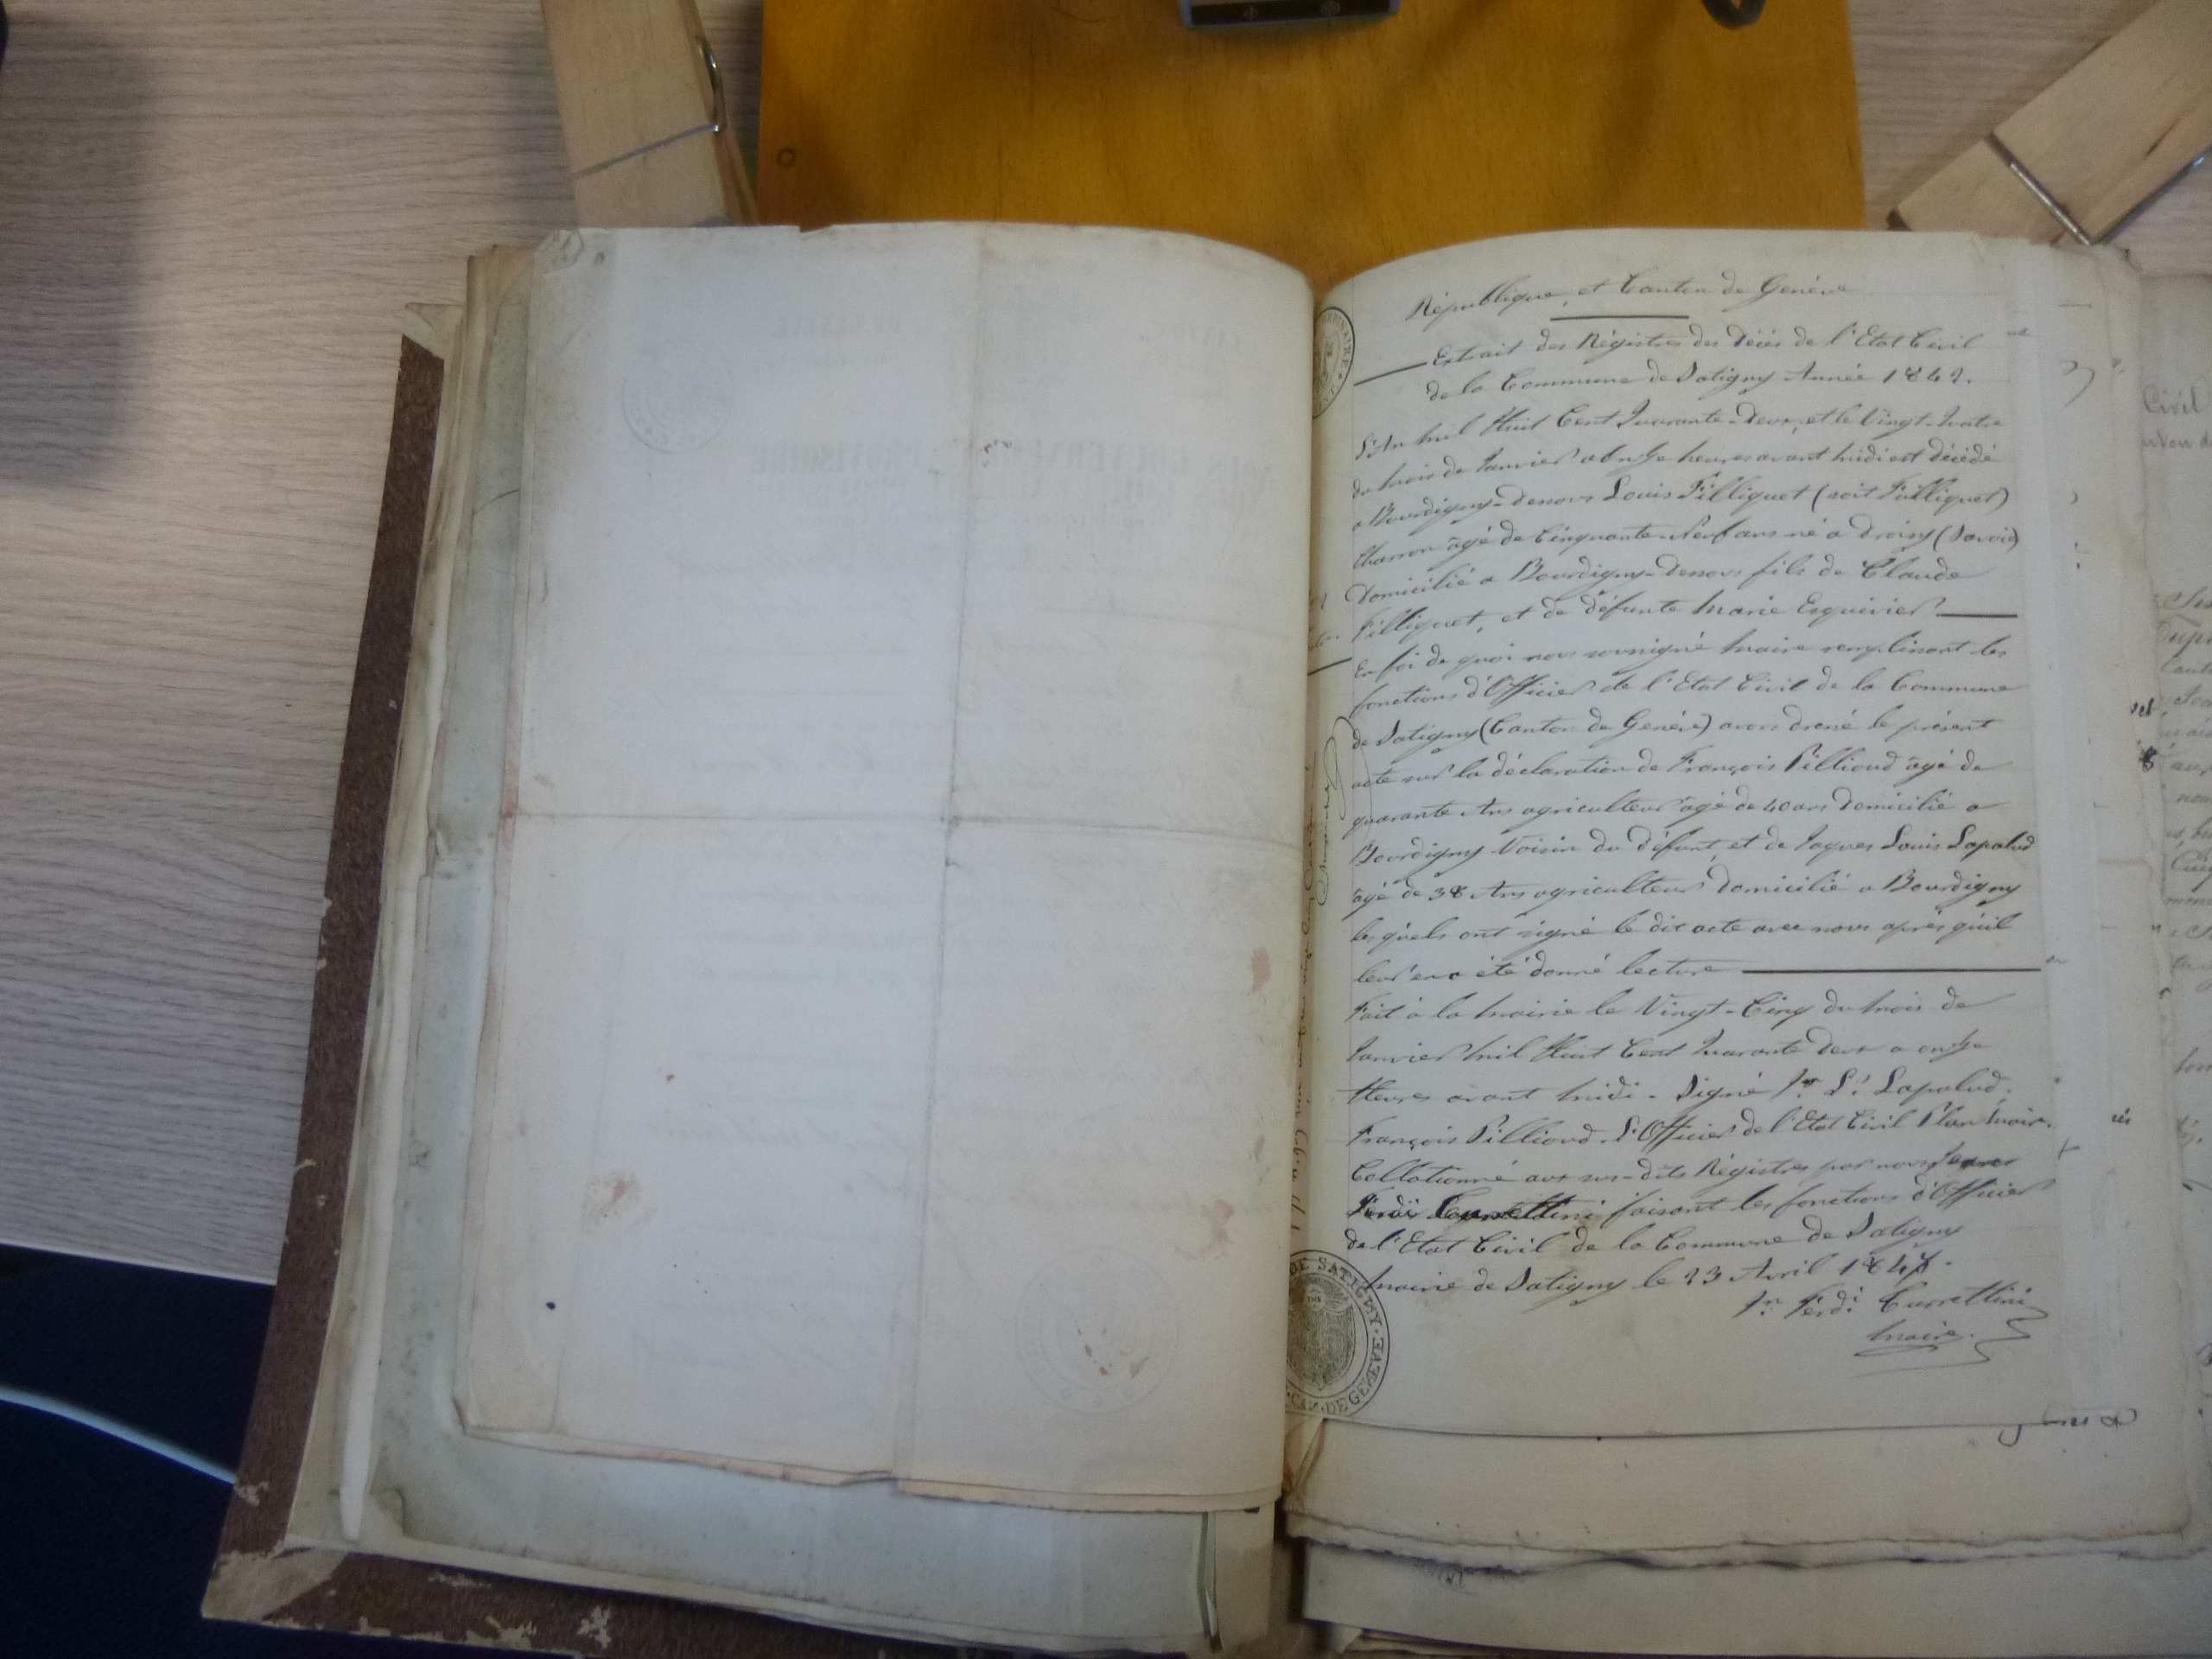 République et Canton de Genève
Extrait des Régistres des Décès de l'Etat Civil
de la Commune de Satigny Année 1842.
L'An mil Huit Cent Quarante-Deux, et le Vingt-Quatre
du mois de Janvier a onze heures avant midi est décédé
a Bourdigny-dessous Louis Filliquet (soit Falliquet)
Charron âgé de Cinquante-Neuf ans né a Droisy (Savoie)
Domicilié a Bourdigny-dessous fils de Claude
Filliquet, et de défunte Marie Esquivier
En foi de quoi nous soussigné Maire remplissant les
fonctions d'Officier de l'Etat Civil de la Commune
de Satigny (Canton de Genève) avons dressé le présent
acte sur la déclaration de François Pillioud âgé de
quarante Ans agriculteur âgé de 40 ans Domicilié a
Bourdigny Voisin du défunt, et de Jaques Louis Lapalud
âgé de 38 Ans agriculteur Domicilié a Bourdigny
les quels ont signé le dit acte avec nous après qu'il
leur en a été donné lecture
Fait à la Mairie le Vingt-Cinq du mois de
Janvier mil Huit Cent Quarante Deux a onze
Heures avant midi. Signé Jn. Ls. Lapalud.
François Pillioud. L'Officier de l'Etat Civil Maire.
Collationné aux sus-dits Régistres par nous
Ferdi Turrettini faisant les fonctions d'Officier
de l'Etat Civil de la Commune de Satigny
Mairie de Satigny le 23 Avril 1847.
Jn. Ferdi. Turrettini
Maire.
DE SATIGNY. CAN. DE GENEVE